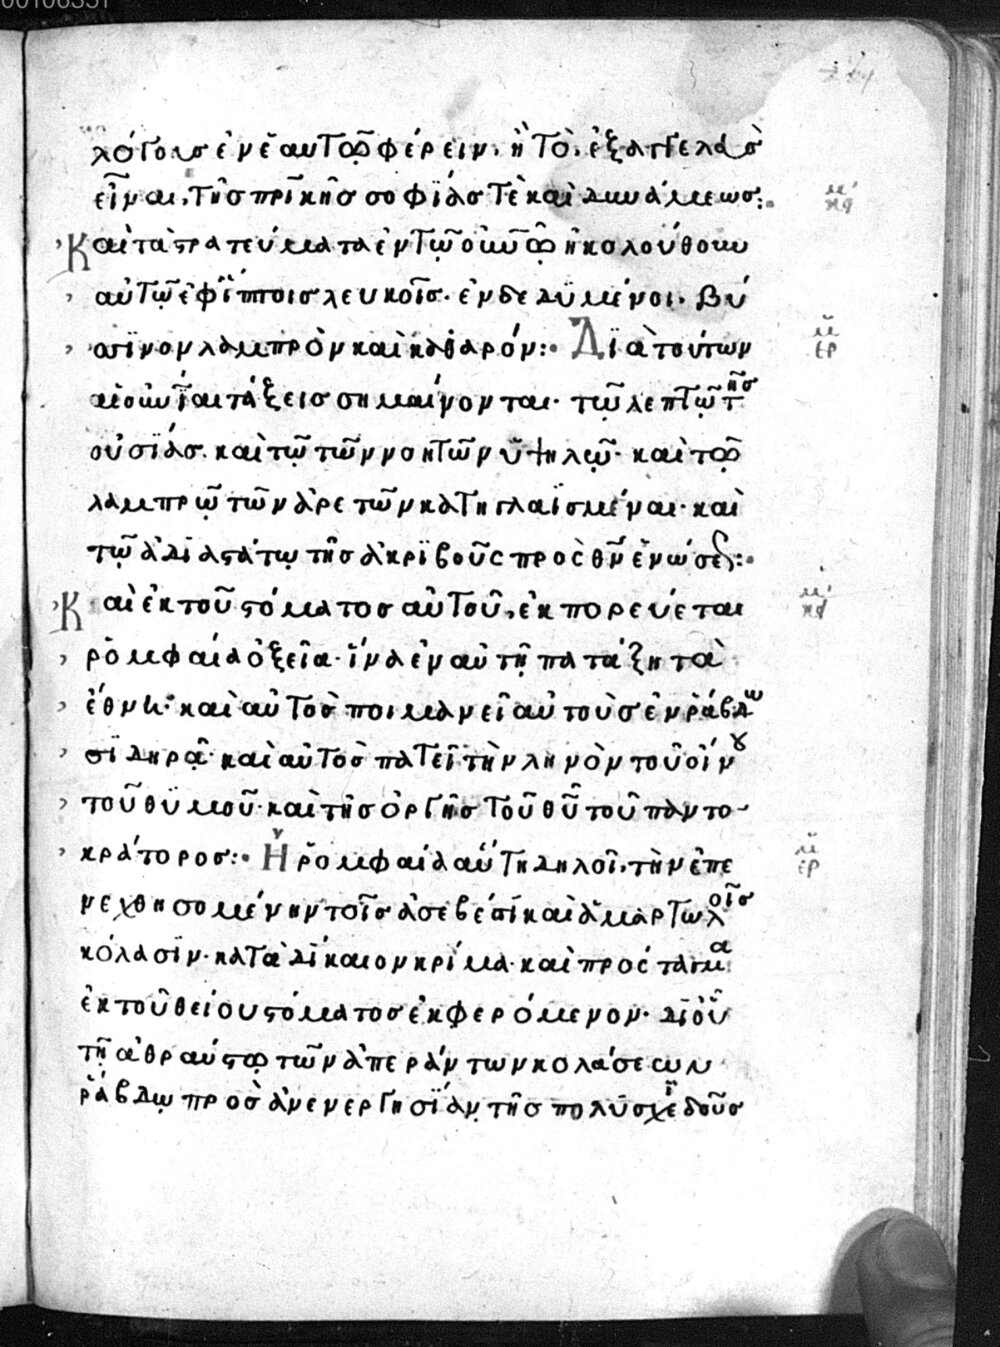 λόγοις ἐν ἑαυτῶ φέρειν, ἢ τὸ, ἐξάγγελος
εἶναι, τῆς πρικῆς σοφίας τὲ καὶ δυνάμεως:·
Καὶ τὰ στρατεύματα ἐν τῶ οὐνῶ ἠκολούθουν
αὐτῶ ἐφ ἵπποις λευκοῖς· ἐνδεδυμένοι· βύ
σσινον λαμπρὸν καὶ καθαρόν:· Διὰ τούτων
αἱ οὐνίαι τάξεις σημαίνονται· τῶ λεπτῶ τῆς
οὐσίας. καὶ τῶ τῶν νοητῶν ὑψηλῶ· καὶ τῶ
λαμπρῶ τῶν ἀρετῶν κατηγλαϊσμέναι· καὶ
τῶ ἀδιαστάτω τῆς ἀκριβοῦς πρὸς θν ἑνώσεως:·
Καὶ ἐκ τοῦ στόματος αὐτοῦ, ἐκπορεύεται
ῥομφαία ὀξεῖα· ἵνα ἐν αὐτῆ πατάξη τὰ
ἔθνη· καὶ αὐτὸς ποιμανεῖ αὐτοὺς ἐν ῥάβδω
σιδηρᾶ· καὶ αὐτὸς πατεῖ τὴν ληνὸν τοῦ οἴνου
τοῦ θυμοῦ· καὶ τῆς ὀργῆς τοῦ θυ τοῦ παντο-
κράτορος:· Ἡ ῥομφαία αὕτη δηλοῖ, τὴν ἐπε
νεχθησομένην τοῖς ἀσεβέσι καὶ ἁμαρτωλοῖς
κόλασιν· κατὰ δίκαιον κρίμα· καὶ πρόσταγμα
ἐκ τοῦ θείου στόματος ἐκφερόμενον· δι οὗ
τῆ ἀθραύστω τῶν ἀπεράντων κολάσεων
ῥάβδω πρὸς ἀνενεργησίαν τῆς πολυσχιεδοῦς
κμ
ἑρμ
κμ
ἑρμ